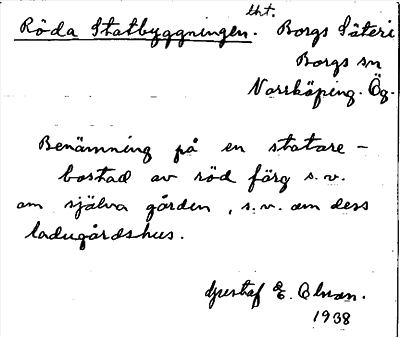 Röda Statbyggningen. tht. Borgs Säteri
Borgs sn
Norrköping. Ög.
Benämning på en statare-
bostad av röd färg s.v.
om själva gården, s.v. om dess
ladugårdshus.
Gustaf E. Olsson.
1938